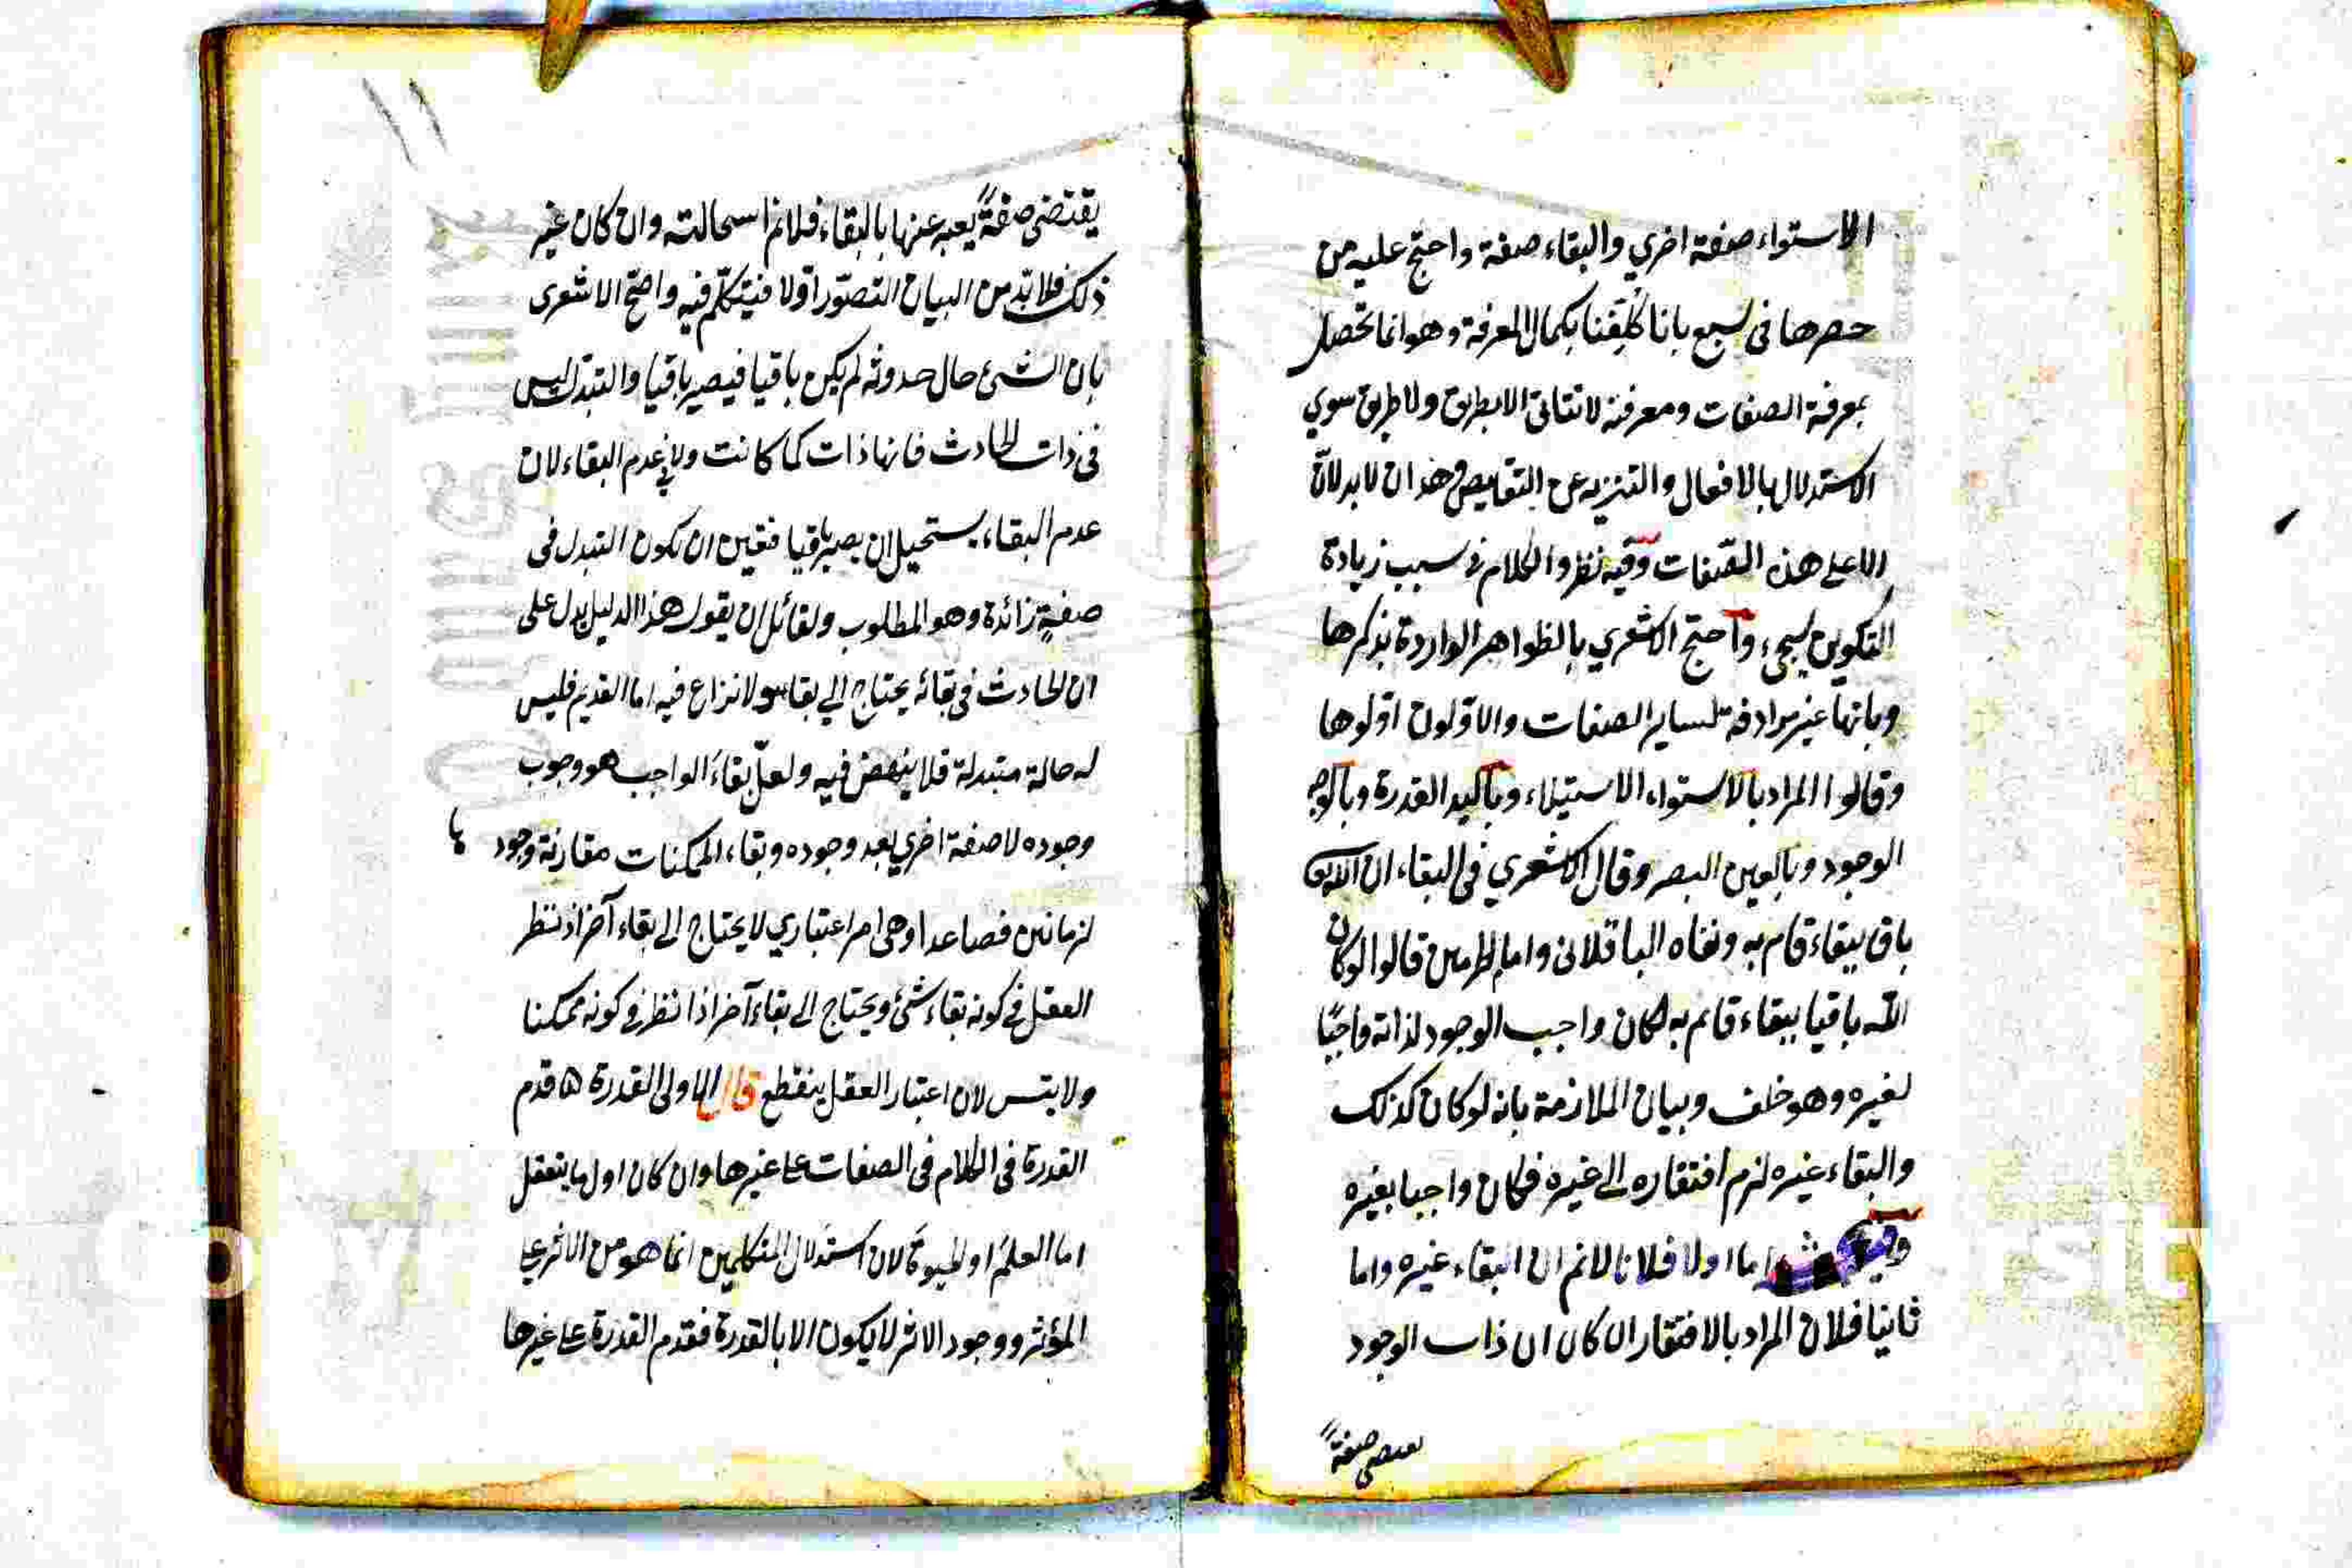 الاستواء صفة اخري والبقاء صفة واحتج عليه من
حصرها فى سبع بانا كلفنا بكمال المعرفة وهو انما تحصل
بمعرفة الصفات ومعرفة لا تتاتى الا بطريق ولا طريق سوي
الاستدلال بالافعال والتنزيه عن النقايص وهذان لا يدلان
الا على هذه الصفات وفيه نظر والكلام فى سبب زيادة
التكوين سيجىء واحتج الاشعري بالظواهر الواردة بذكرها
وبانها غير مرادفة لساير الصفات والاولون اولوها
وقالوا المراد بالاستواء الاستيلاء وباليد القدرة وبالوجه
الوجود وبالعين البصر وقال الاشعري فى البقاء ان الله تع
باق ببقاء قام به ونفاه الباقلانى وامام الحرمين قالوا لو كان
الله باقيا ببقاء قايم به لكان واجب الوجود لذاته واجبًا
لغيره وهو خلف وبيان الملازمة بانه لو كان كذلك
والبقاء غيره لزم افتقاره الى غيره فكان واجبا بغيره
اما اولا فلانا لا نم ان البقاء غيره واما
ثانيا فلان المراد بالافتقار ان كان ان ذات الوجود
يقتضى صفةً
١١
يقتضى صفةً يعبر عنها بالبقاء فلا نم استحالته وان كان غير
ذلك فلا بدّ من البيان التصوّر اوّلا فيتكلّم فيه واحتج الاشعرى
بان الشىء حال حدوثه لم يكن باقيا فيصير باقيا والتبدل ليس
فى ذات الحادث فانها ذات كما كانت ولا فى عدم البقاء لان
عدم البقاء يستحيل ان يصير باقيا فتعين ان تكون التبدل فى
صفةٍ زائدة وهو المطلوب ولقائل ان يقول هذا الدليل يدل على
ان الحادث فى بقائه يحتاج الى بقاء ولا نزاع فيه اما القديم فليس
له حالة متبدلة فلا ينهض فيه ولعلّ بقاءَ الواجب هو وجوب
وجوده لا صفة اخري بعد وجوده وبقاء الممكنات مقارنة وجود
ها
لزمانين فصاعدا وهى امر اعتباري لا يحتاج الى بقاء آخر اذ نظر
العقل فى كونه بقاء شىء ويحتاج الى بقاء آخر اذا نظر فى كونه ممكنا
ولا يتس لان اعتبار العقل ينقطع قال الاولى القدرة قدم
القدرة فى الكلام فى الصفات على غيرها وان كان اول ما يتعقل
اما العلم او الحيوة لان استدلال المتكلمين انما هو من الاثر على
المؤثر ووجود الاثر لا يكون الا بالقدرة فقدم القدرة على غيرها